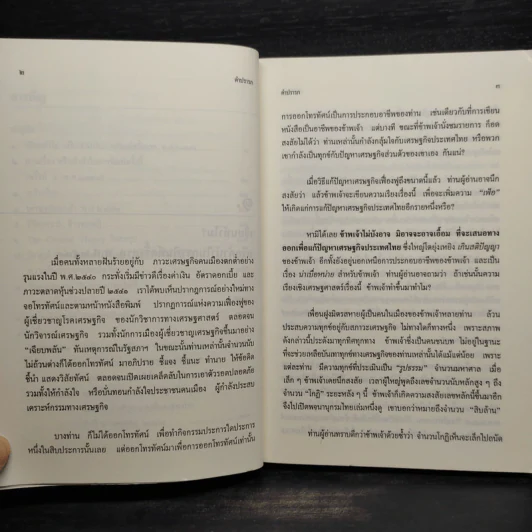 ๒
คำปรารภ
เมื่อคนทั้งหลายฝันร้ายอยู่กับ ภาวะเศรษฐกิจคนเมืองตกต่ำอย่าง
รุนแรงในปี พ.ศ.๒๕๔๐ กระทั่งเริ่มมีข่าวดีเรื่องค่าเงิน อัตราดอกเบี้ย และ
ภาวะตลาดหุ้นช่วงปลายปี ๒๕๔๑ เราได้พบเห็นปรากฏการณ์อย่างใหม่ทาง
จอโทรทัศน์และตามหน้าหนังสือพิมพ์ ปรากฏการณ์แห่งความเฟื่องฟูของ
ผู้เชี่ยวชาญโรคเศรษฐกิจ ของนักวิชาการทางเศรษฐศาสตร์ ตลอดจน
นักวิจารณ์เศรษฐกิจ รวมทั้งนักการเมืองผู้เชี่ยวชาญเศรษฐกิจขึ้นมาอย่าง
"เฉียบพลัน" ทันเหตุการณ์ในรัฐสภาฯ ในขณะนั้นท่านเหล่านั้นจำนวนนับ
ไม่ถ้วนต่างก็ได้ออกโทรทัศน์ มาอภิปราย ชี้แจง ชี้แนะ ทำนาย ให้ข้อคิด
ชี้นำ แสดงวิสัยทัศน์ ตลอดจนเปิดเผยเคล็ดลับในการเอาตัวรอดปลอดภัย
รวมทั้งให้กำลังใจ หรือบั่นทอนกำลังใจประชาชนคนเมือง ผู้กำลังประสบ
เคราะห์กรรมทางเศรษฐกิจ
บางท่าน ก็ไม่ได้ออกโทรทัศน์ เพื่อทำกิจกรรมประการใดประการ
หนึ่งในสิบประการนั้นเลย แต่ออกโทรทัศน์มาเพื่อการออกโทรทัศน์เท่านั้น
คำปรารภ
๓
การออกโทรทัศน์เป็นการประกอบอาชีพของท่าน เช่นเดียวกับที่การเขียน
หนังสือเป็นอาชีพของข้าพเจ้า แต่บางที ขณะที่ข้าพเจ้านั่งชมรายการ ก็อด
สงสัยไม่ได้ว่า ท่านเหล่านั้นกำลังกลุ้มใจกับเศรษฐกิจประเทศไทย หรือพวก
เขากำลังเป็นทุกข์กับปัญหาเศรษฐกิจส่วนตัวของเขาเอง กันแน่?
เมื่อวิธีแก้ปัญหาเศรษฐกิจเฟื่องฟูถึงขนาดนี้แล้ว ท่านผู้อ่านอาจนึก
สงสัยว่า แล้วข้าพเจ้าจะเขียนความเรียงเรื่องนี้ เพื่อจะเพิ่มความ "เฟ้อ"
ให้เกิดแก่การแก้ปัญหาเศรษฐกิจประเทศไทยอีกรายหนึ่งหรือ?
หามิได้เลย ข้าพเจ้าไม่บังอาจ มิอาจจะอาจเอื้อม ที่จะเสนอทาง
ออกเพื่อแก้ปัญหาเศรษฐกิจประเทศไทย ซึ่งใหญ่โตยุ่งเหยิง เกินสติปัญญา
ของข้าพเจ้า อีกทั้งยังอยู่นอกเหนือการประกอบอาชีพของข้าพเจ้า และเป็น
เรื่อง น่าเบื่อหน่าย สำหรับข้าพเจ้า ท่านผู้อ่านอาจถามว่า ถ้าเช่นนั้นความ
เรียงเชิงเศรษฐศาสตร์เรื่องนี้ ข้าพเจ้าทำขึ้นมาทำไม?
เพื่อนฝูงมิตรสหายผู้เป็นคนในเมืองของข้าพเจ้าหลายท่าน ล้วน
ประสบความทุกข์อยู่กับสภาวะเศรษฐกิจ ไม่ทางใดก็ทางหนึ่ง เพราะสภาพ
ดังกล่าวนี้ประดังมาทุกทิศทุกทาง ข้าพเจ้าซึ่งเป็นคนชนบท ไม่อยู่ในฐานะ
ที่จะช่วยเหลือบันเทาทุกข์ทางเศรษฐกิจของท่านเหล่านั้นได้แม้แต่น้อย เพราะ
แต่ละท่าน มีความทุกข์ที่ประเมินเป็น "รูปธรรม" จำนวนมหาศาล เมื่อ
เล็ก ๆ ข้าพเจ้าเคยนึกสงสัย เวลาผู้ใหญ่พูดถึงเลขจำนวนนับหลักสูง ๆ ถึง
จำนวน "โกฏิ" ระยะหลัง ๆ นี้ ข้าพเจ้าก็เกิดความสงสัยเลขหลักนี้ขึ้นมาอีก
จึงไปเปิดพจนานุกรมไทยเล่มหนึ่งดู เขาบอกว่าหมายถึงจำนวน "สิบล้าน"
ท่านผู้อ่านทราบดีกว่าข้าพเจ้าด้วยซ้ำว่า จำนวนโกฏิเห็นจะเล็กไปถนัด